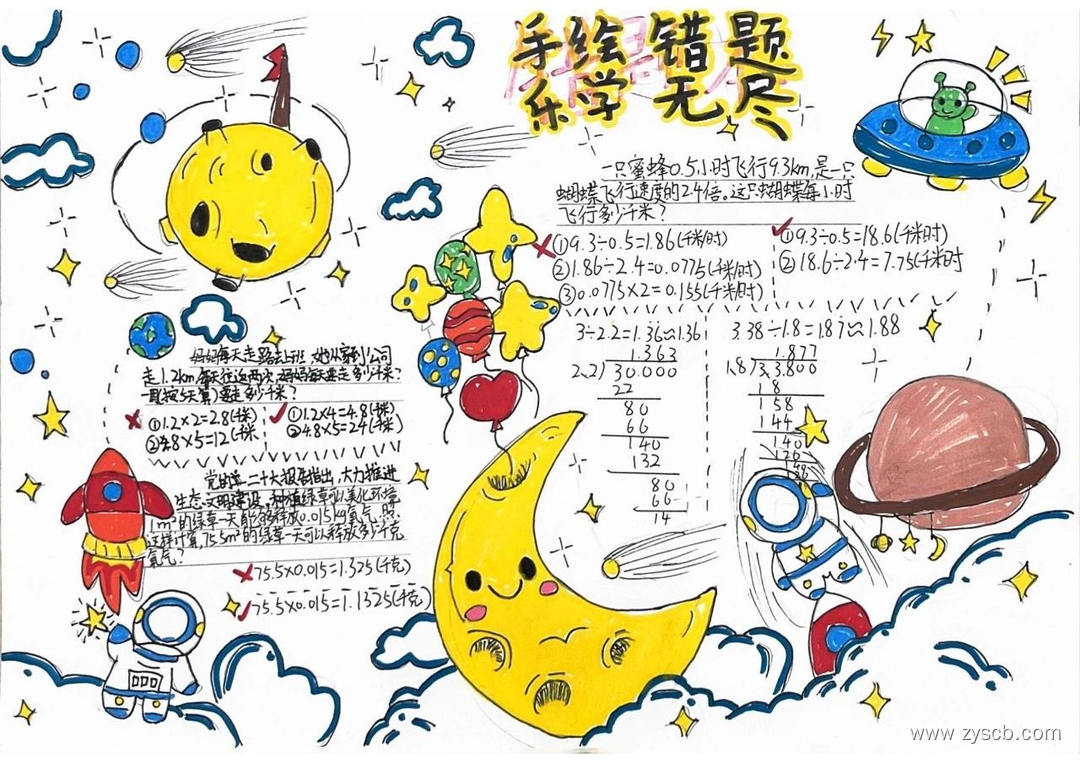 手绘错题
乐学无尽
一只蜜蜂0.5小时飞行9.3km,是一只
蝴蝶飞行速度的2.4倍。这只蝴蝶每小时
飞行多少千米?
①9.3÷0.5=1.86(千米/时)
②1.86÷2.4=0.0775(千米/时)
③0.0775×2=0.155(千米/时)
①9.3÷0.5=18.6(千米/时)
②18.6÷2.4=7.75(千米/时
3÷2.2=1.36≈1.36
1.363
2.2)30.000
22
80
66
140
132
80
66
14
3.38÷1.8=1.87≈1.88
1.877
1.8)3.3.800
18
158
144
140
126
妈妈每天走路去上班,她从家到公司
走1.2km,每天往返两次,妈妈每天要走多少千米?
一周(按5天算)要走多少千米?
①1.2×2=2.8(千米)
②4.8×5=12(千米
①1.2×4=4.8(千米)
②4.8×5=24(千米)
党的二十大报告指出,大力推进
生态文明建设,种植绿草可以美化环境
1m²的绿草一天能够释放0.015kg氧气,照
这样计算,75.5m²的绿草一天可以释放多少千克
氧气?
75.5×0.015=1.325(千克)
75.5×0.015=1.1325(千克)
www.zyscb.com